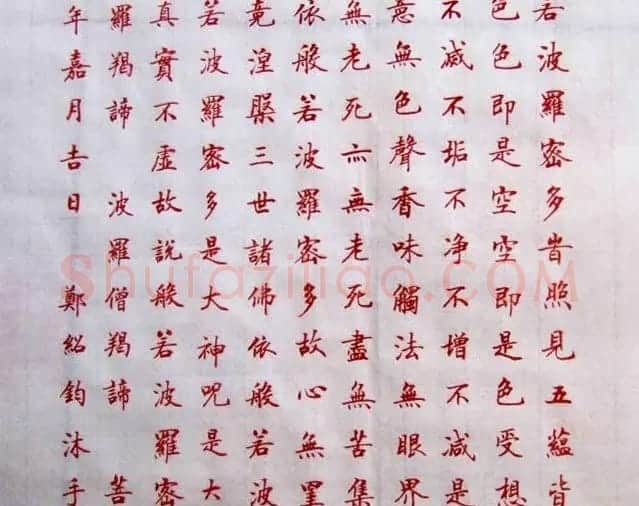 若波羅密多旹照見五蘊皆
色色即是空空即是色受想
不滅不垢不净不增不減是
意無色聲香味觸法無眼界
無老死亦無老死盡無苦集
依般若波羅密多故心無罣
竟涅槃三世諸佛依般若波
若波羅密多是大神呪是大
真實不虛故說般若波羅密
羅羯諦 波羅僧羯諦 菩
年嘉月吉日 鄭紹鈞沐手
Shufaziliao.COM